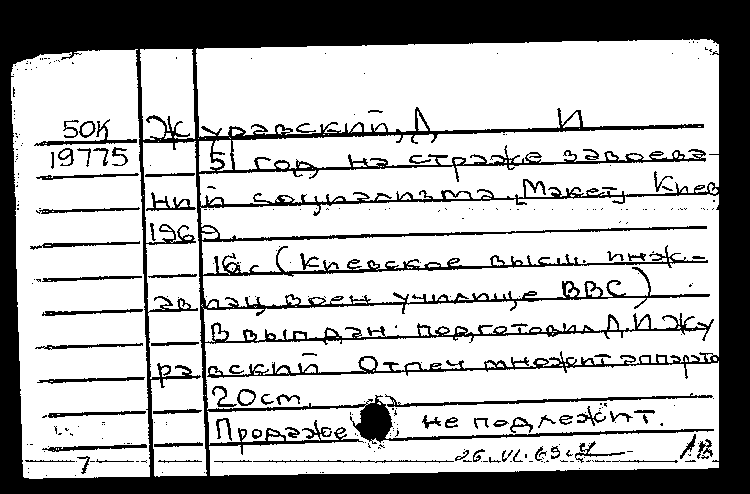 50К Журавский, Д И
19775 51 год на страже завоева-
ний социализма [Макет] Киев
1969.
16с. (Киевское высш. инж-
авиац. воен училище ВВС)
В вып. дан: подготовил Д.И Жу
равский Отпеч множит аппарато
20см.
Продаже не подлежит.
26.VI.69.
7